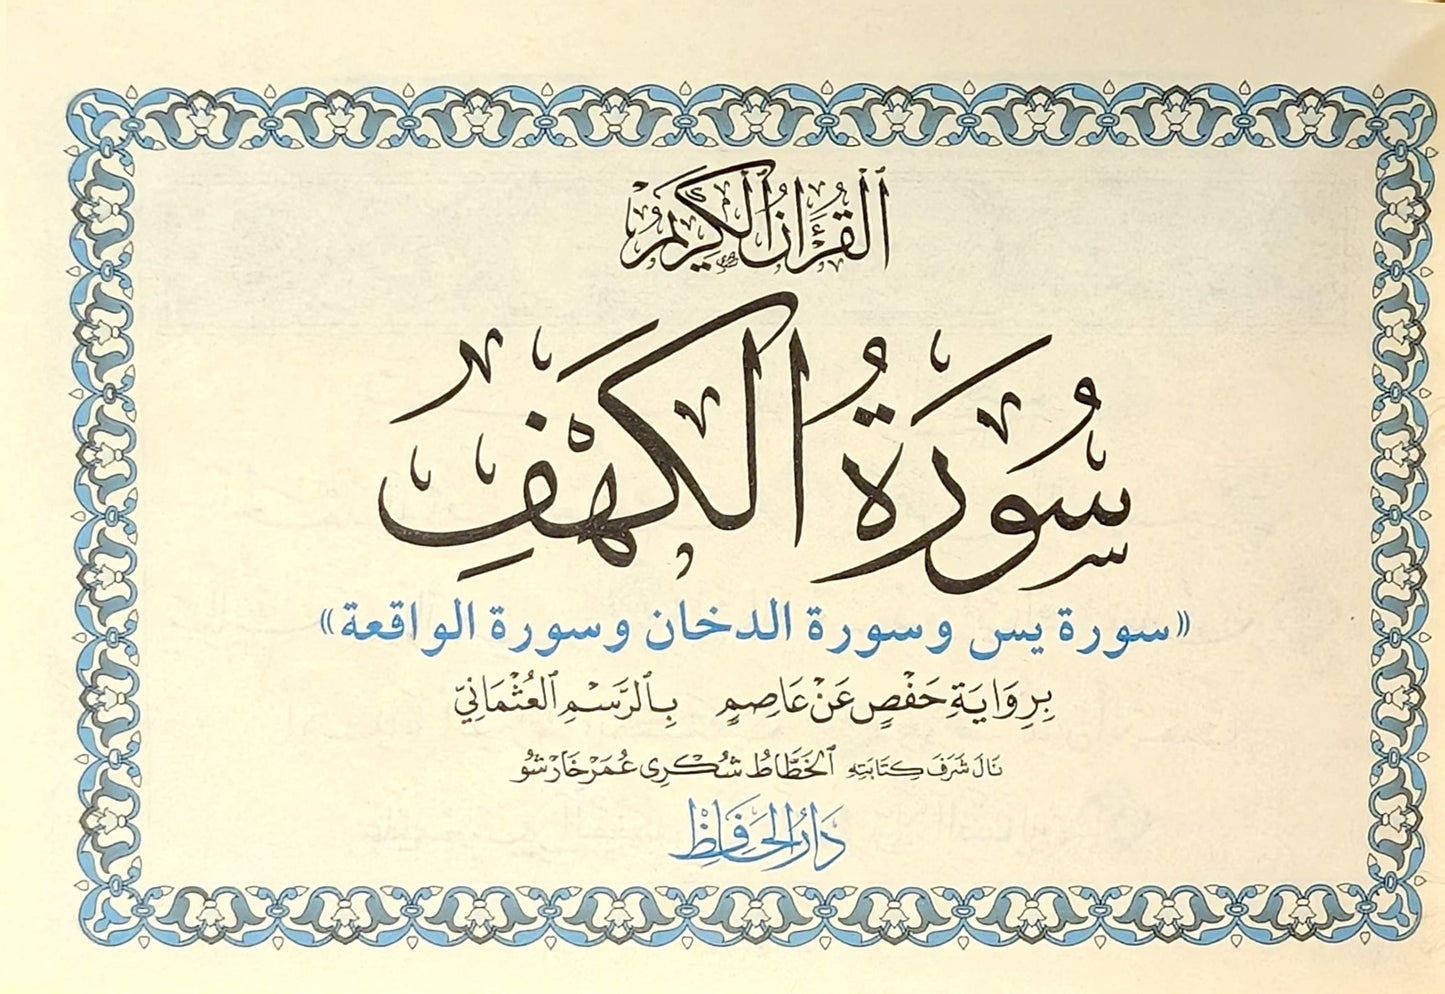 ٱلْقُرْءَانُ ٱلْكَرِيمُ
سُورَةُ الْكَهْفِ
«سورة يس وسورة الدخان وسورة الواقعة»
بِرِوَايَةِ حَفْصٍ عَنْ عَاصِمٍ بِٱلرَّسْمِ ٱلْعُثْمَانِيّ
نَالَ شَرَفَ كِتَابَتِهِ ٱلْخَطَّاطُ شُكْرِي عُمَرْ خَارْشُو
دَارُ الْحَافِظْ